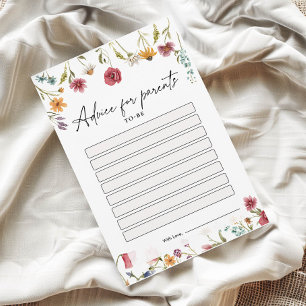 Advice for parents
TO-BE
With Love,